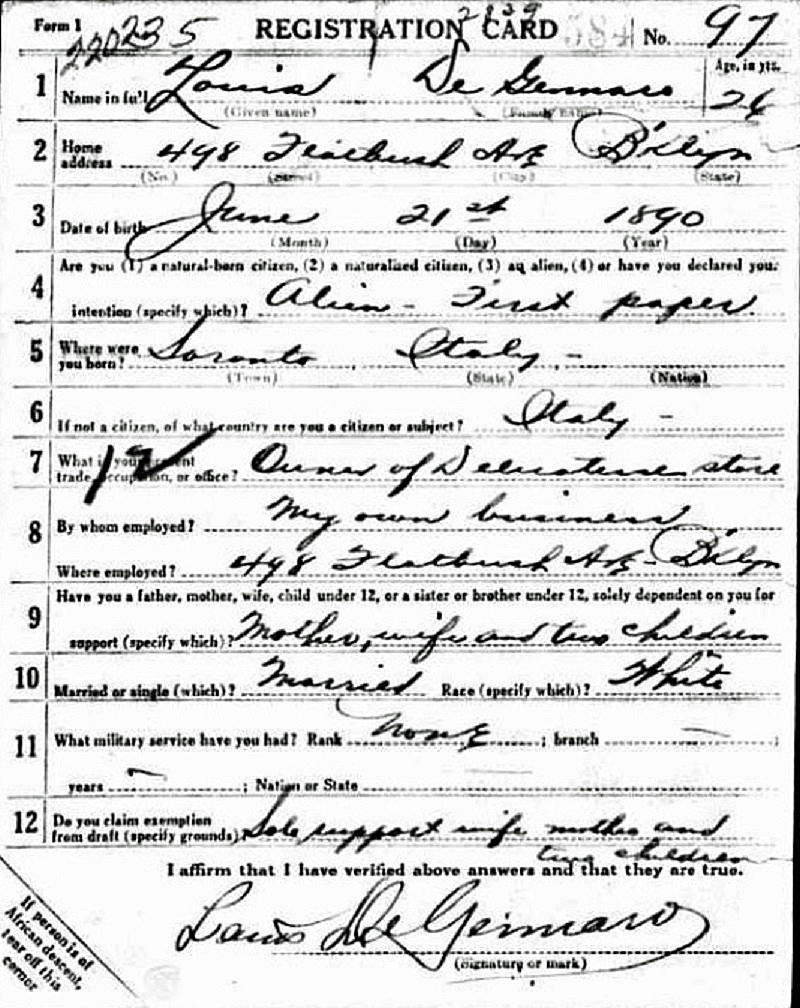 Form 1 REGISTRATION CARD 2839 584 No. 97
220235
1 Name in full Louis De Gennaro Age, in yrs. 26
(Given name) (Family name)
2 Home address 498 Flatbush Ave B'klyn
(No.) (Street) (City) (State)
3 Date of birth June 21st 1890
(Month) (Day) (Year)
4 Are you (1) a natural-born citizen, (2) a naturalized citizen, (3) an alien, (4) or have you declared your
intention (specify which)? Alien - First paper
5 Where were you born? Soronto, Italy -
(Town) (State) (Nation)
6 If not a citizen, of what country are you a citizen or subject? Italy -
7 What is your present trade, occupation, or office? Owner of Delicatesse store
8 By whom employed? My own business
Where employed? 498 Flatbush Ave - B'klyn
9 Have you a father, mother, wife, child under 12, or a sister or brother under 12, solely dependent on you for
support (specify which)? Mother, wife and two children
10 Married or single (which)? Married Race (specify which)? White
11 What military service have you had? Rank None ; branch — ;
years — ; Nation or State —
12 Do you claim exemption from draft (specify grounds)? Sole support wife mother and
two children
I affirm that I have verified above answers and that they are true.
Louis De Gennaro
(Signature or mark)
If person is of
African descent,
tear off this
corner